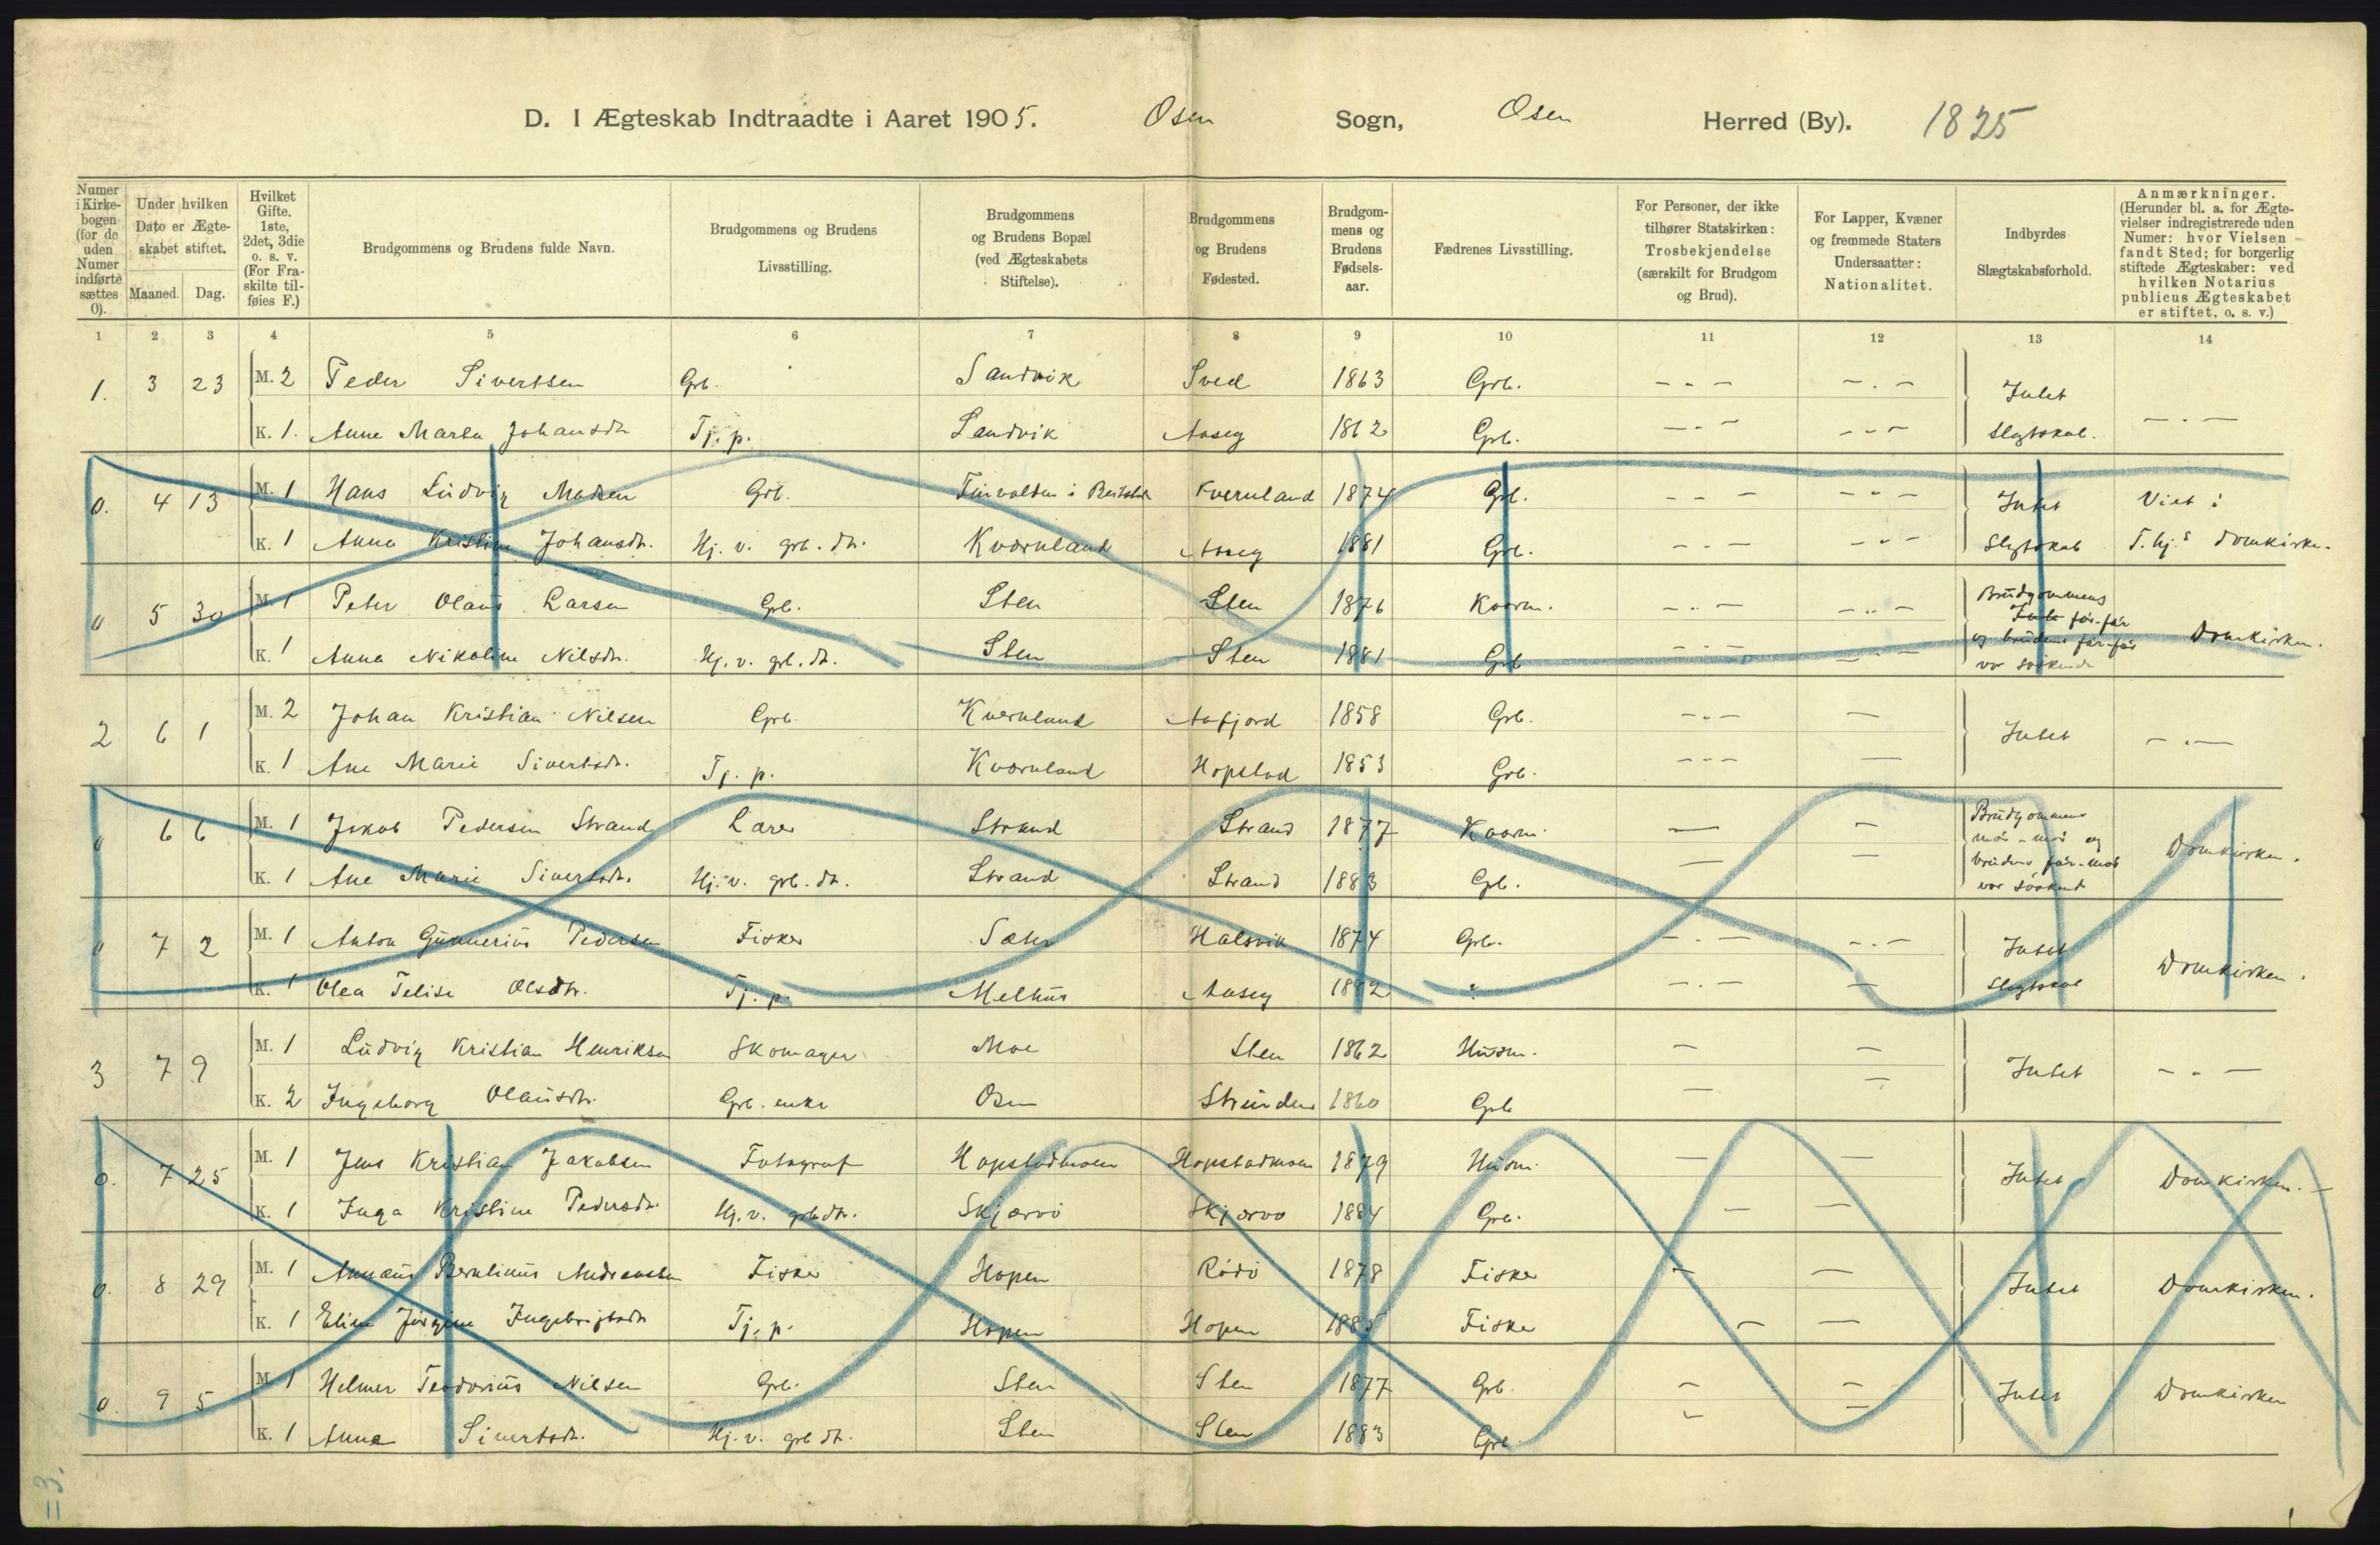 D. I Ægteskab Indtraadte i Aaret 1905. Osen Sogn, Osen Herred (By). 1825
Numer i Kirkebogen (for de uden Numer indførte sættes 0).
Under hvilken Dato er Ægteskabet stiftet.
Maaned. Dag.
Hvilket Gifte. 1ste, 2det, 3die o. s. v. (For Fraskilte tilføies F.)
Brudgommens og Brudens fulde Navn.
Brudgommens og Brudens Livsstilling.
Brudgommens og Brudens Bopæl (ved Ægteskabets Stiftelse).
Brudgommens og Brudens Fødested.
Brudgommens og Brudens Fødselsaar.
Fædrenes Livsstilling.
For Personer, der ikke tilhører Statskirken: Trosbekjendelse (særskilt for Brudgom og Brud).
For Lapper, Kvæner og fremmede Staters Undersaatter: Nationalitet.
Indbyrdes Slægtskabsforhold.
Anmærkninger. (Herunder bl. a. for Ægtevielser indregistrerede uden Numer: hvor Vielsen fandt Sted; for borgerlig stiftede Ægteskaber: ved hvilken Notarius publicus Ægteskabet er stiftet, o. s. v.)
1 2 3 4 5 6 7 8 9 10 11 12 13 14
1. 3 23 M. 2 Peder Sivertsen Grb. Sandvik Sved 1863 Grb. - " - - . - Intet
K. 1. Anne Marta Johansdtr Tj. p. Sandvik Aaseg 1862 Grb. - " - - " - Slegtskab. - . -
0. 4 13 M. 1 Hans Ludvig Madsen Grb. Kvernland 1874 Grb. - " - - " - Intet Viet i
K. 1 Anna Kristine Johansdtr. Hj. v. grb. dtr. Kværnland Aaseg 1881 Grb. - " - - " - Slegtskab T. hj.s domkirke.
0 5 30 M. 1 Peter Olaus Larsen Grb. Sten Sten 1876 Kaarm. - " - - " - Brudgommens far-far
K. 1 Anna Nikoline Nilsdtr. Hj. v. grb. dtr. Sten Sten 1881 Grb - " - - " - og brudens far-far var søskende Domkirken.
2 6 1 M. 2 Johan Kristian Nilsen Grb. Kvernland Aafjord 1858 Grb. - " - — Intet - . -
K. 1 Ane Marie Sivertsdtr. Tj. p. Kværnland Hopstad 1853 Grb. - " - —
0 6 6 M. 1 Jakob Pedersen Strand Lærer Strand Strand 1877 Kaarm. — — Brudgommens mor-mor og
K. 1 Ane Marie Sivertsdtr. Hj. v. grb. dtr. Strand Strand 1883 Grb. — — brudens far-mor var søskend Domkirken.
0 7 2 M. 1 Anton Gunnerius Pedersen Fisker Sæter Halsvik 1874 Grb. - " - - " - Intet
K. 1 Olea Telise Olsdtr. Tj. p. Melhus Aaseg 1882 " - " - — Slegtskab Domkirken.
3 7 9 M. 1 Ludvig Kristian Henriksen Skomager Moe Sten 1862 Husm. — — Intet - " -
K. 2 Ingeborg Olausdtr. Grb. enke Osen Strinden 1860 Grb — —
0. 7 25 M. 1 Jens Kristian Jakobsen Fotograf Hopstadmoen Hopstadmoen 1879 Husm. — — Intet Domkirken. —
K. 1 Inga Kristine Pedersdtr. Hj. v. grb dtr. Skjærvø Skjærvø 1884 Grb. — —
0. 8 29 M. 1 Annæus Berntinus Andreassen Fisker Hopen Rødø 1878 Fisker — — Intet Domkirken.
K. 1 Eline Jørgine Ingebrigtsdtr Tj. p. Hopen Hopen 1885 Fisker — —
0. 9 5 M. 1 Helmer Teodorius Nilsen Grb. Sten Sten 1877 Grb. — — Intet Domkirken
K. 1 Anna Sivertsdtr. Hj. v. grb dtr. Sten Sten 1883 Grb. — —
=3.